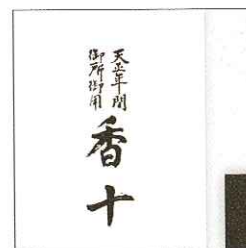 天正年間
御所御用
香十